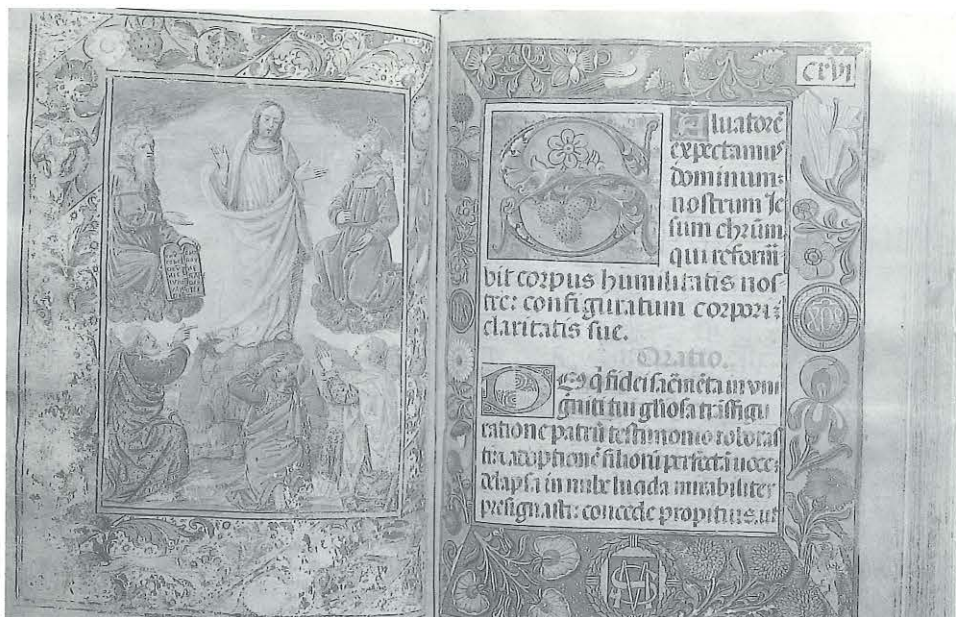 CXVI
Saluatorē
expectamus
dominum:
nostrum Je
sum chr̄um
qui reformā
bit corpus humilitatis nos
tre: configuratum corpori:
claritatis sue.
Oratio.
Deꝰ q̄ fidei sac̄mēta in vni
geniti tui gl̄iosa trāsfigu
ratione patrū testimonio roboras
ti: ⁊ adoptionē filiorū perfectā uoce:
delapsa in nube lucida mirabiliter
presignasti: concede propitius. ut